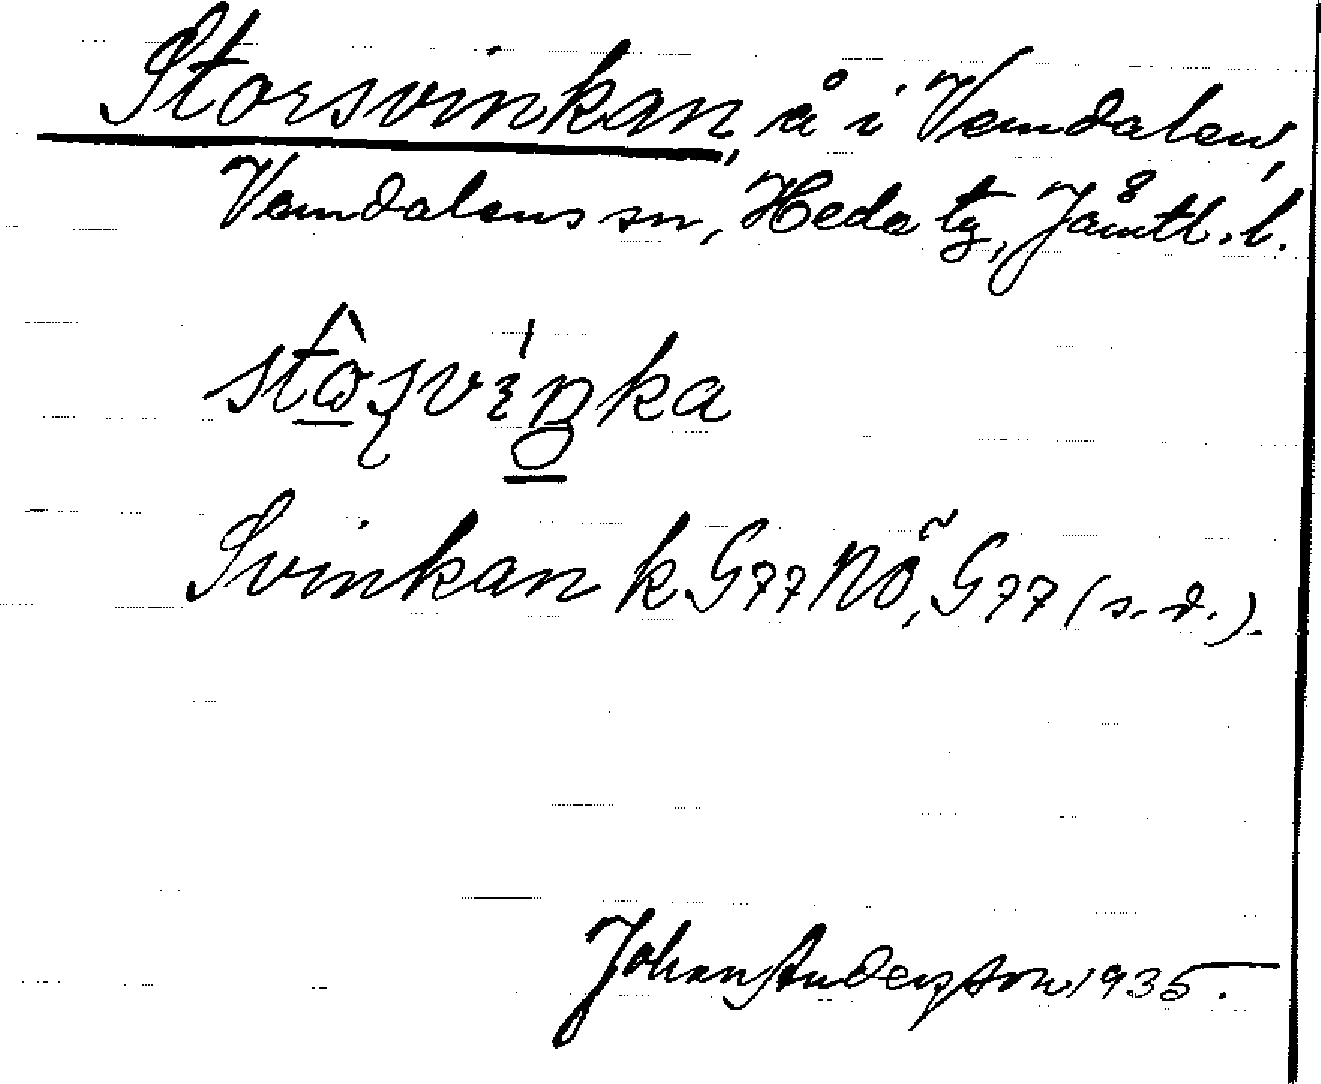 Storsvinkan, å i Vemdalen,
Vemdalens sn, Hede tg, Jämtl. l.
Svinkan k G77 NÖ, G77 (s. d.).
Johan Anderson 1935.